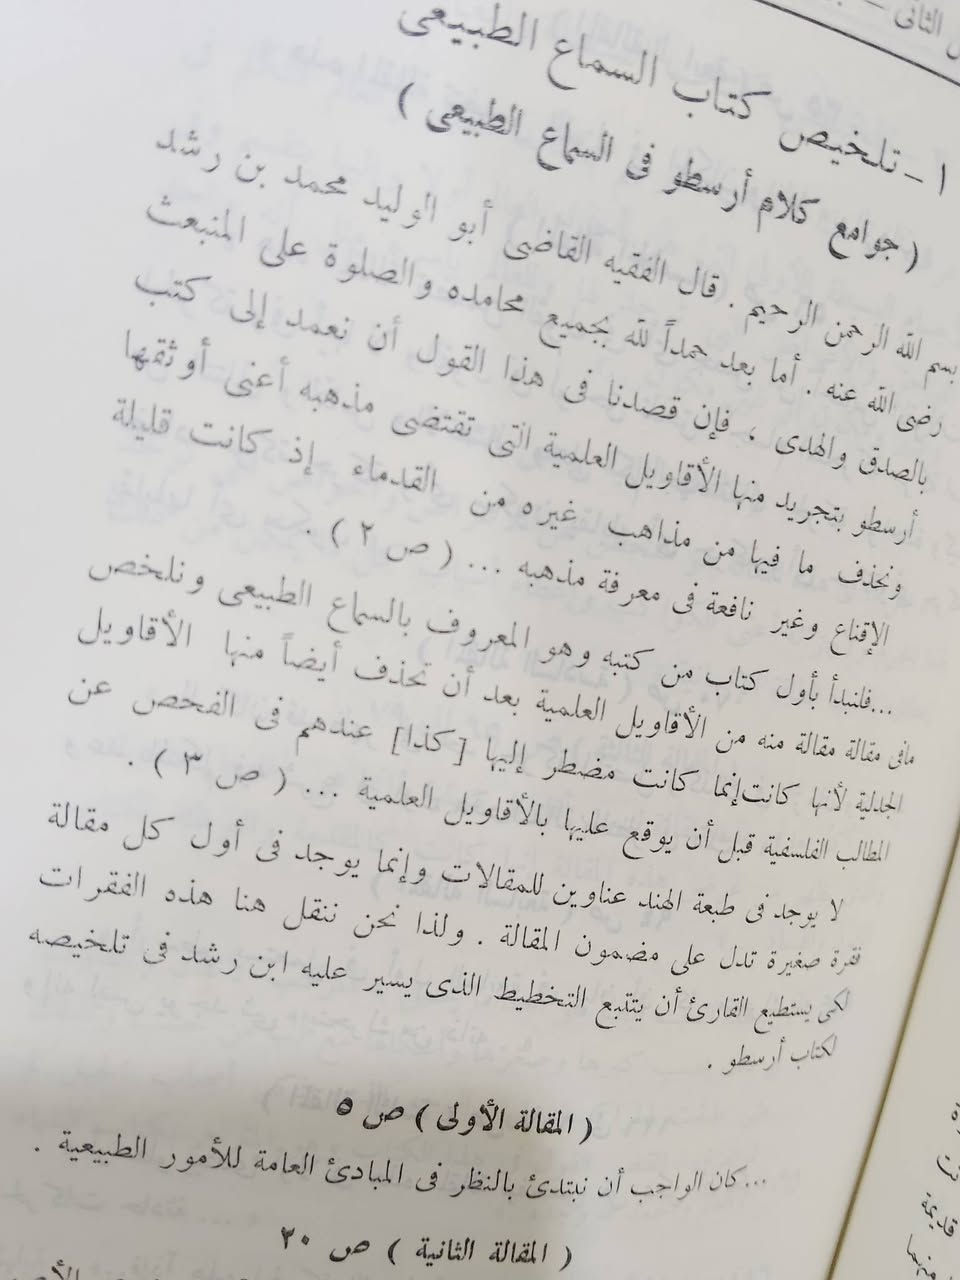 الثانى —
١ – تلخيص كتاب السماع الطبيعى
( جوامع كلام أرسطو فى السماع الطبيعى )
بسم الله الرحمن الرحيم . قال الفقيه القاضى أبو الوليد محمد بن رشد
رضى الله عنه . أما بعد حمداً لله بجميع محامده والصلوة على المنبعث
بالصدق والهدى ، فإن قصدنا فى هذا القول أن نعمد إلى كتب
أرسطو بتجريد منها الأقاويل العلمية التى تقتضى مذهبه أعنى أوثقها
ونحذف ما فيها من مذاهب غيره من القدماء إذ كانت قليلة
الإقناع وغير نافعة فى معرفة مذهبه ... ( ص ٢ ) .
...فلنبدأ بأول كتاب من كتبه وهو المعروف بالسماع الطبيعى ونلخص
مافى مقالة مقالة منه من الأقاويل العلمية بعد أن نحذف أيضاً منها الأقاويل
الجدلية لأنها كانت إنما كانت مضطر إليها [كذا] عندهم فى الفحص عن
المطالب الفلسفية قبل أن يوقع عليها بالأقاويل العلمية ... ( ص ٣ ) .
لا يوجد فى طبعة الهند عناوين للمقالات وإنما يوجد فى أول كل مقالة
فقرة صغيرة تدل على مضمون المقالة . ولذا نحن ننقل هنا هذه الفقرات
لكى يستطيع القارئ أن يتتبع التخطيط الذى يسير عليه ابن رشد فى تلخيصه
لكتاب أرسطو .
( المقالة الأولى ) ص ٥
...كان الواجب أن نبتدئ بالنظر فى المبادئ العامة للأمور الطبيعية .
( المقالة الثانية ) ص ٢٠
قديمة